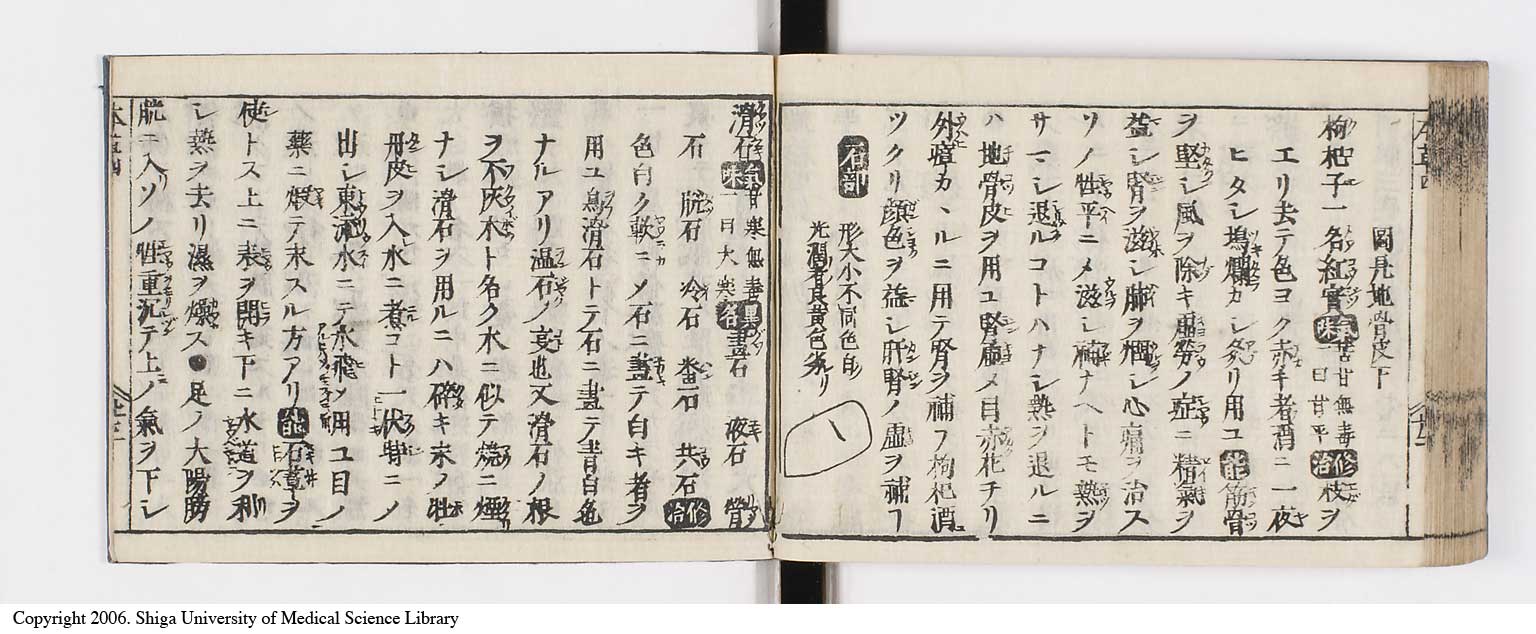 本草四
圖見地骨皮下
枸杞子一名紅實氣味苦甘無毒一曰甘平修治枝ヲ
エリ去テ色ヨク赤キ者酒ニ一夜
ヒタシ搗爛カシ用ユ能筋骨
ヲ堅シ風ヲ除キ虚勞ノ症ニ精氣ヲ
益シ腎ヲ滋シ肺ヲ潤シ心痛ヲ治ス
ソノ性平ニメ滋シ補ナヘトモ熱ヲ
サマシ退ルコトハナシ熱ヲ退ルニ
ハ地骨皮ヲ用ユ腎虚メ目赤花チリ
外障カヽルニ用テ腎ヲ補フ枸杞酒
ツクリ顔色ヲ益シ肝腎ノ虚ヲ補フ
石部
形大小不同色白
光潤者良黄色劣レリ
滑石氣味甘寒無毒一曰大寒異名畫石 液石 膋
石 脱石 冷石 番石 共石修治
色白ク軟ニメ石ニ畫テ白キ者ヲ
用ユ烏滑石トテ石ニ畫テ青白色
ナルアリ温石ノ哀也又滑石ノ根
ヲ不灰木ト名ク木ニ似テ燒ニ煙
ナシ滑石ヲ用ルニハ碎キ末ノ牡
丹皮ヲ入水ニ煮コト一伏時ニノ
出シ東流水ニテ水飛メ用ユ目ノ
藥ニ煅テ末スル方アリ能石葦ヲ
使トス上ニ表ヲ開キ下ニ水道ヲ利
シ熱ヲ去リ濕ヲ燥ス●足ノ大陽膀
胱ニ入ソノ性重沉テ上ノ氣ヲ下シ
本草四
Copyright 2006. Shiga University of Medical Science Library